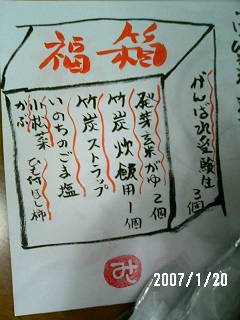 福箱
がんばれ受験生 3個
発芽玄米がゆ 2個
竹炭 炊飯用 1個
竹炭ストラップ
いのちのごま塩
小松菜 ひも付ほし柿
かぶ
み
2007/1/20